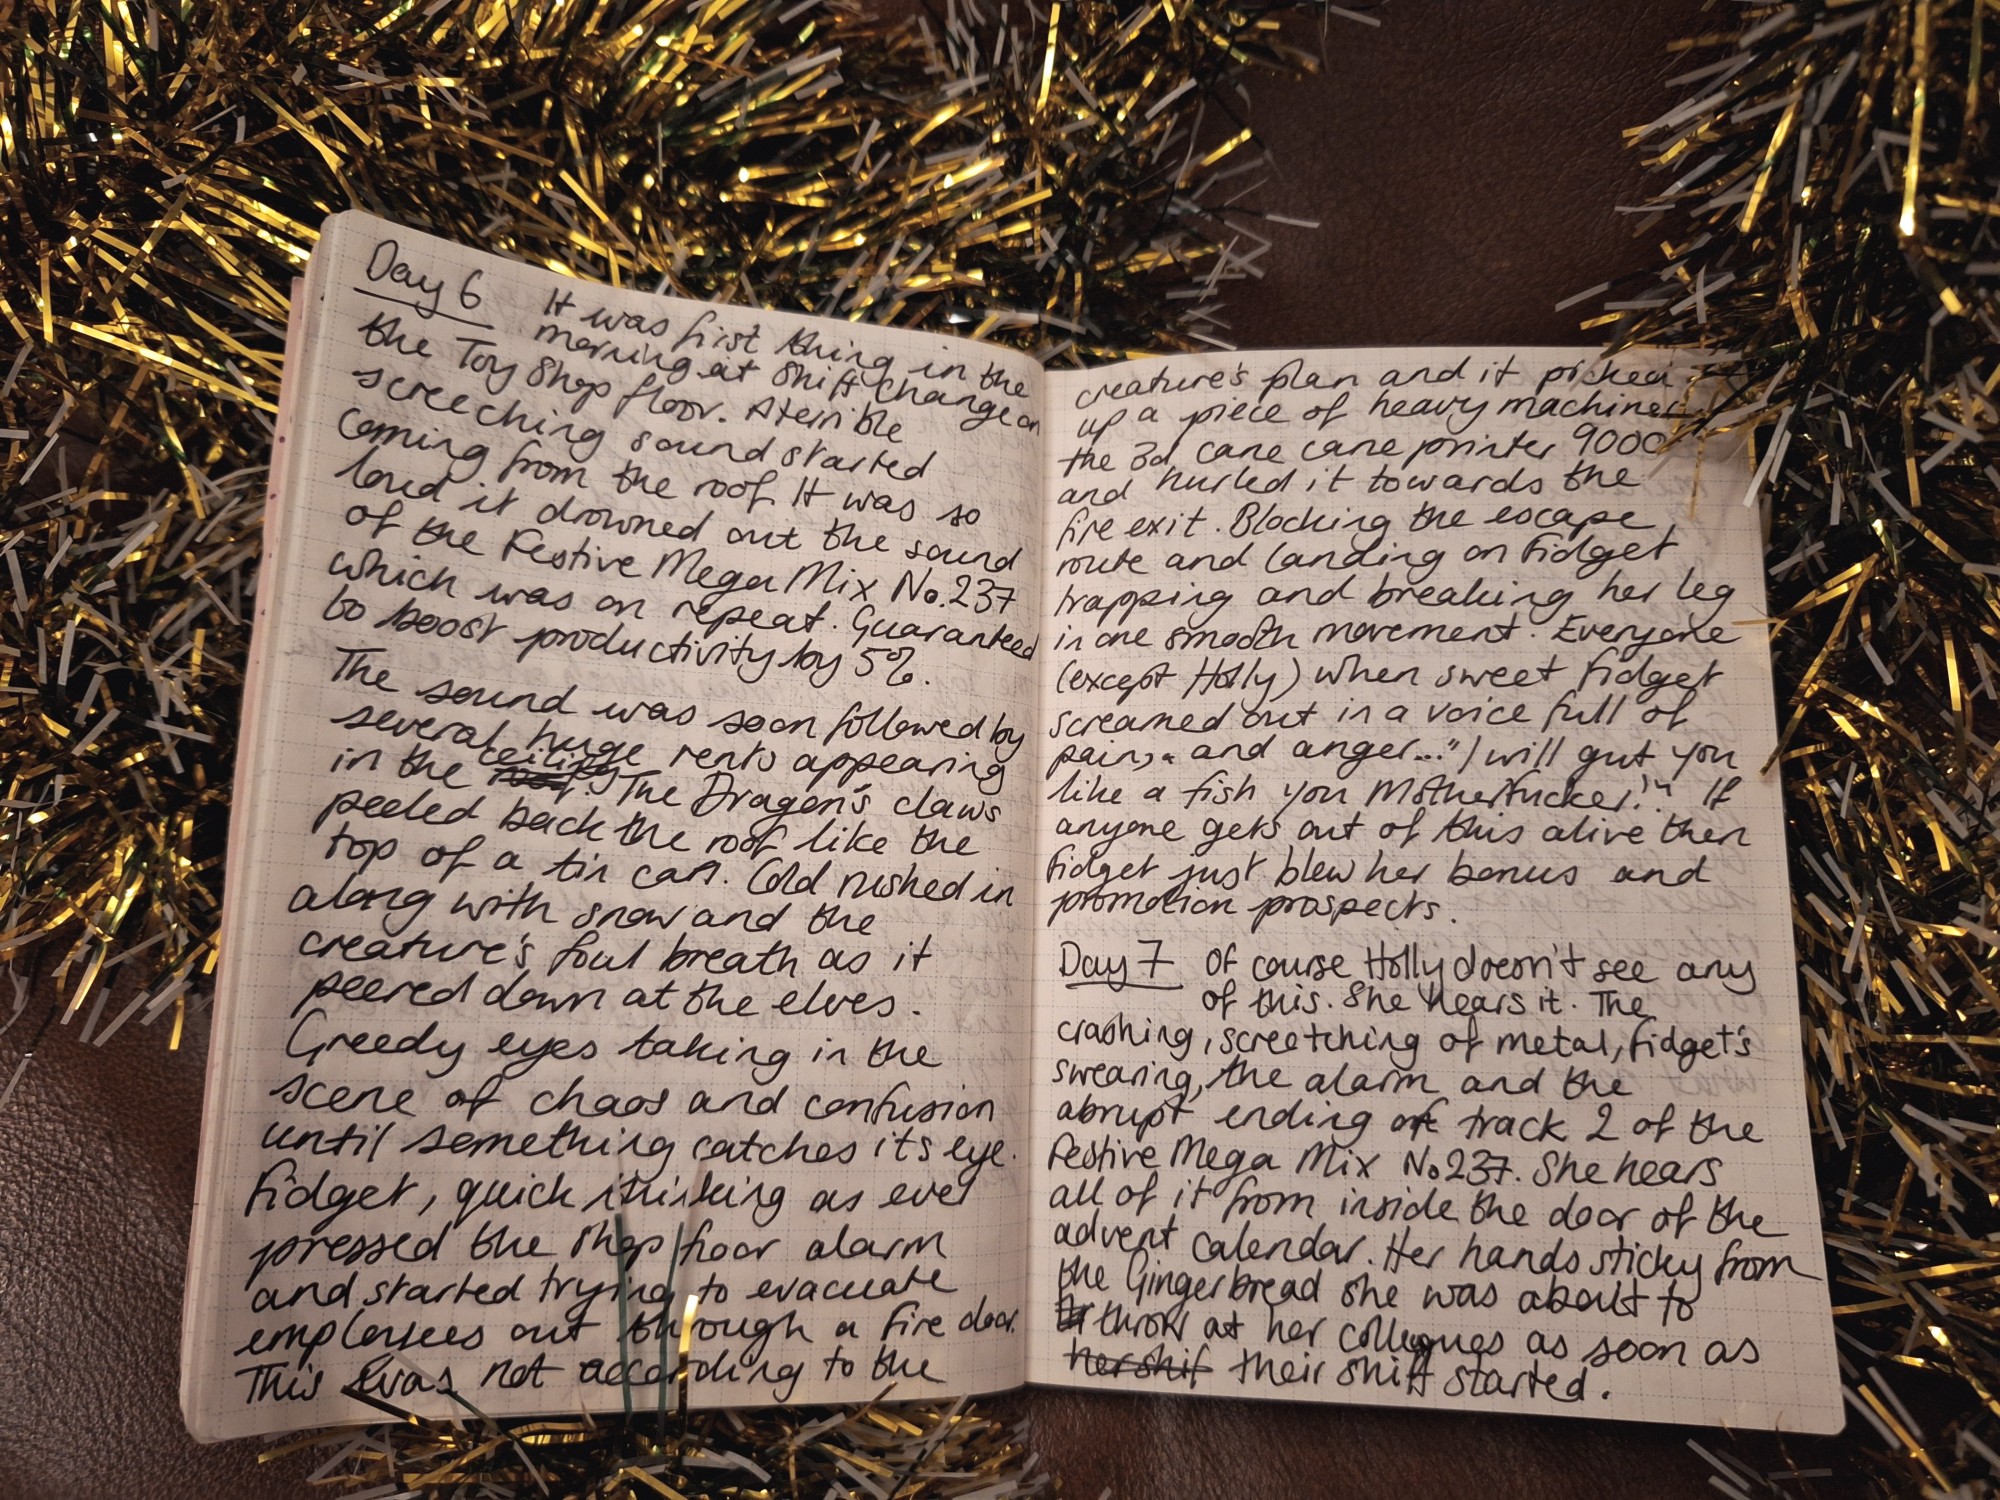 Day 6 It was first thing in the
morning at shift change on
the Toy Shop floor. A terrible
screeching sound started
coming from the roof. It was so
loud it drowned out the sound
of the Festive Mega Mix No.237
which was on repeat. Guaranteed
to boost productivity by 5%.
The sound was soon followed by
several huge rents appearing
in the ceiling. The Dragon's claws
peeled back the roof like the
top of a tin can. Cold rushed in
along with snow and the
creature's foul breath as it
peered down at the elves.
Greedy eyes taking in the
scene of chaos and confusion
until something catches it's eye.
Fidget, quick thinking as ever
pressed the shop floor alarm
and started trying to evacuate
employees out through a fire door.
This was not according to the
creature's plan and it picked
up a piece of heavy machinery
the 3d cane cane printer 9000
and hurled it towards the
fire exit. Blocking the escape
route and landing on Fidget
trapping and breaking her leg
in one smooth movement. Everyone
(except Holly) when sweet Fidget
screamed out in a voice full of
pain, and anger... "I will gut you
like a fish you Motherfucker!" If
anyone gets out of this alive then
Fidget just blew her bonus and
promotion prospects.
Day 7 Of course Holly doesn't see any
of this. She hears it. The
crashing, screetching of metal, Fidget's
swearing, the alarm and the
abrupt ending of track 2 of the
Festive Mega Mix No237. She hears
all of it from inside the door of the
advent calendar. Her hands sticky from
the Gingerbread she was about to
throw at her collegues as soon as
her shif their shift started.